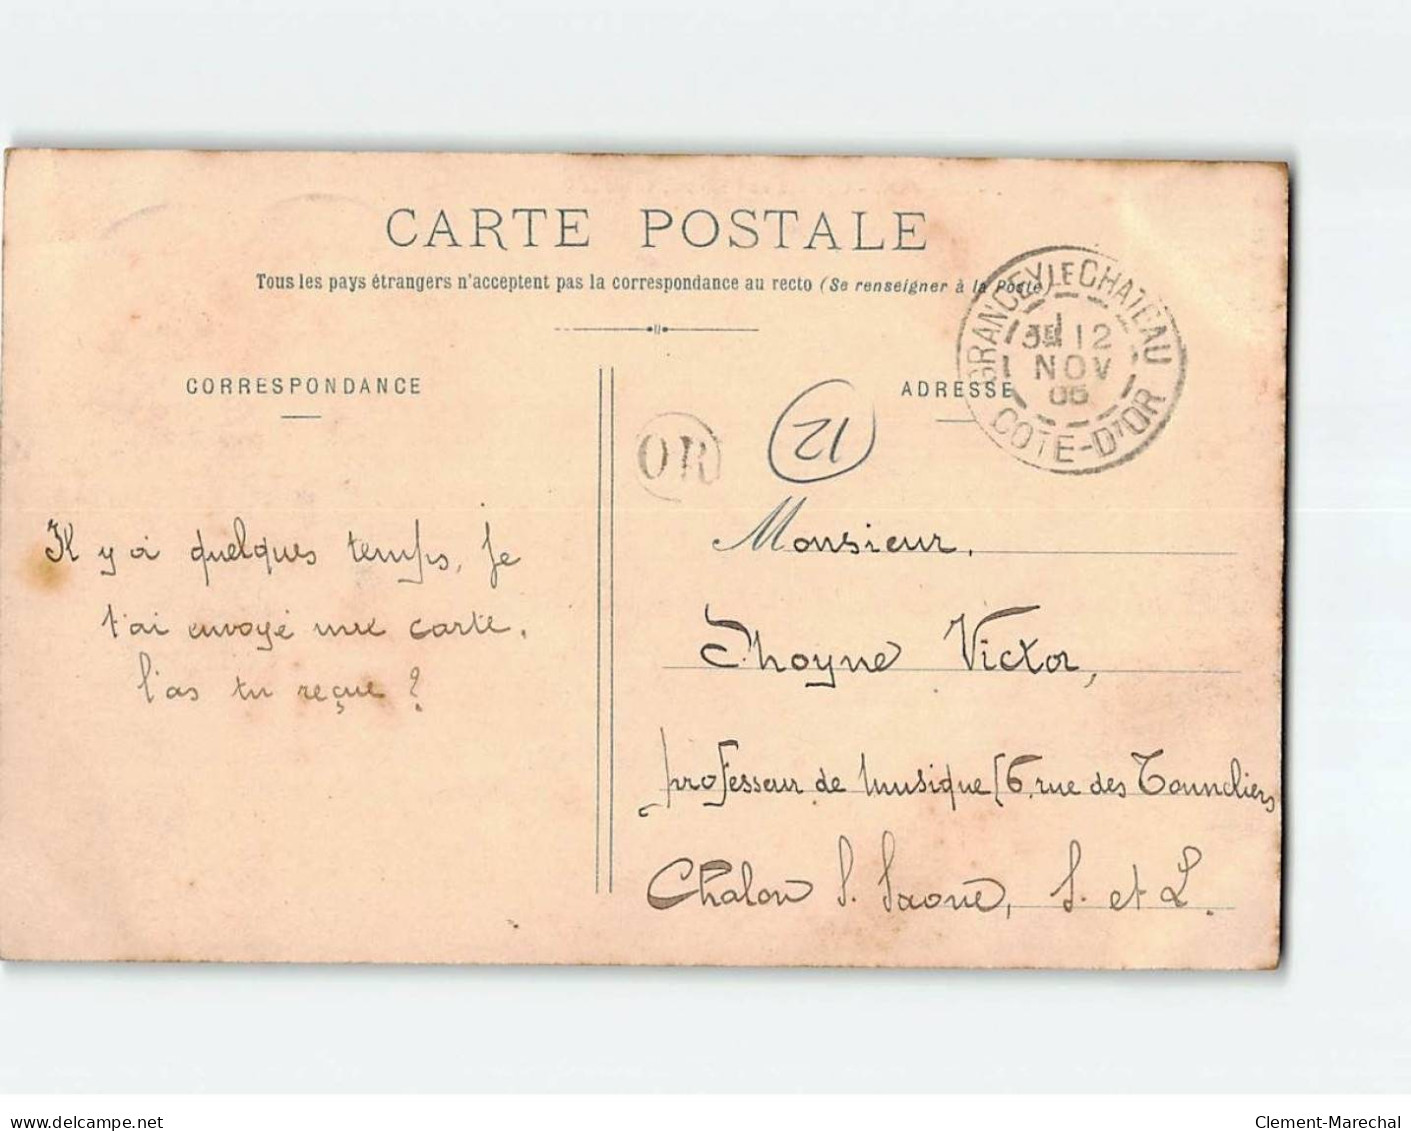 CARTE POSTALE
Tous les pays étrangers n'acceptent pas la correspondance au recto (Se renseigner à la Poste)
CORRESPONDANCE
ADRESSE
GRANCEY LE CHATEAU
12
NOV
COTE-D'OR
OR
12
Il y a quelques temps, je
t'ai envoyé une carte.
l'as tu reçue ?
Monsieur,
Thoyne Victor,
professeur de musique 6, rue des Tonneliers
Chalon S. Saone, S. et L.
www.delcampe.net
Clement-Marechal